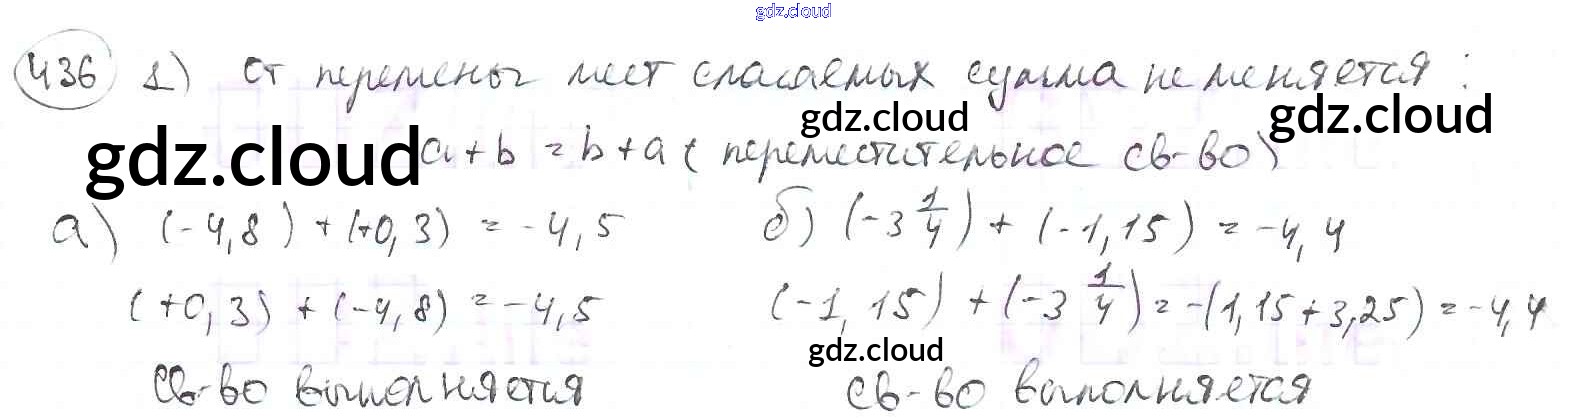 gdz.cloud
436 1) От перемены мест слагаемых сумма не меняется:
gdz.cloud gdz.cloud
gdz.cloud a + b = b + a (переместительное св-во)
а) (-4,8) + (+0,3) = -4,5 б) (-3 1/4) + (-1,15) = -4,4
(+0,3) + (-4,8) = -4,5 (-1,15) + (-3 1/4) = -(1,15 + 3,25) = -4,4
gdz.cloud
Св-во выполняется св-во выполняется